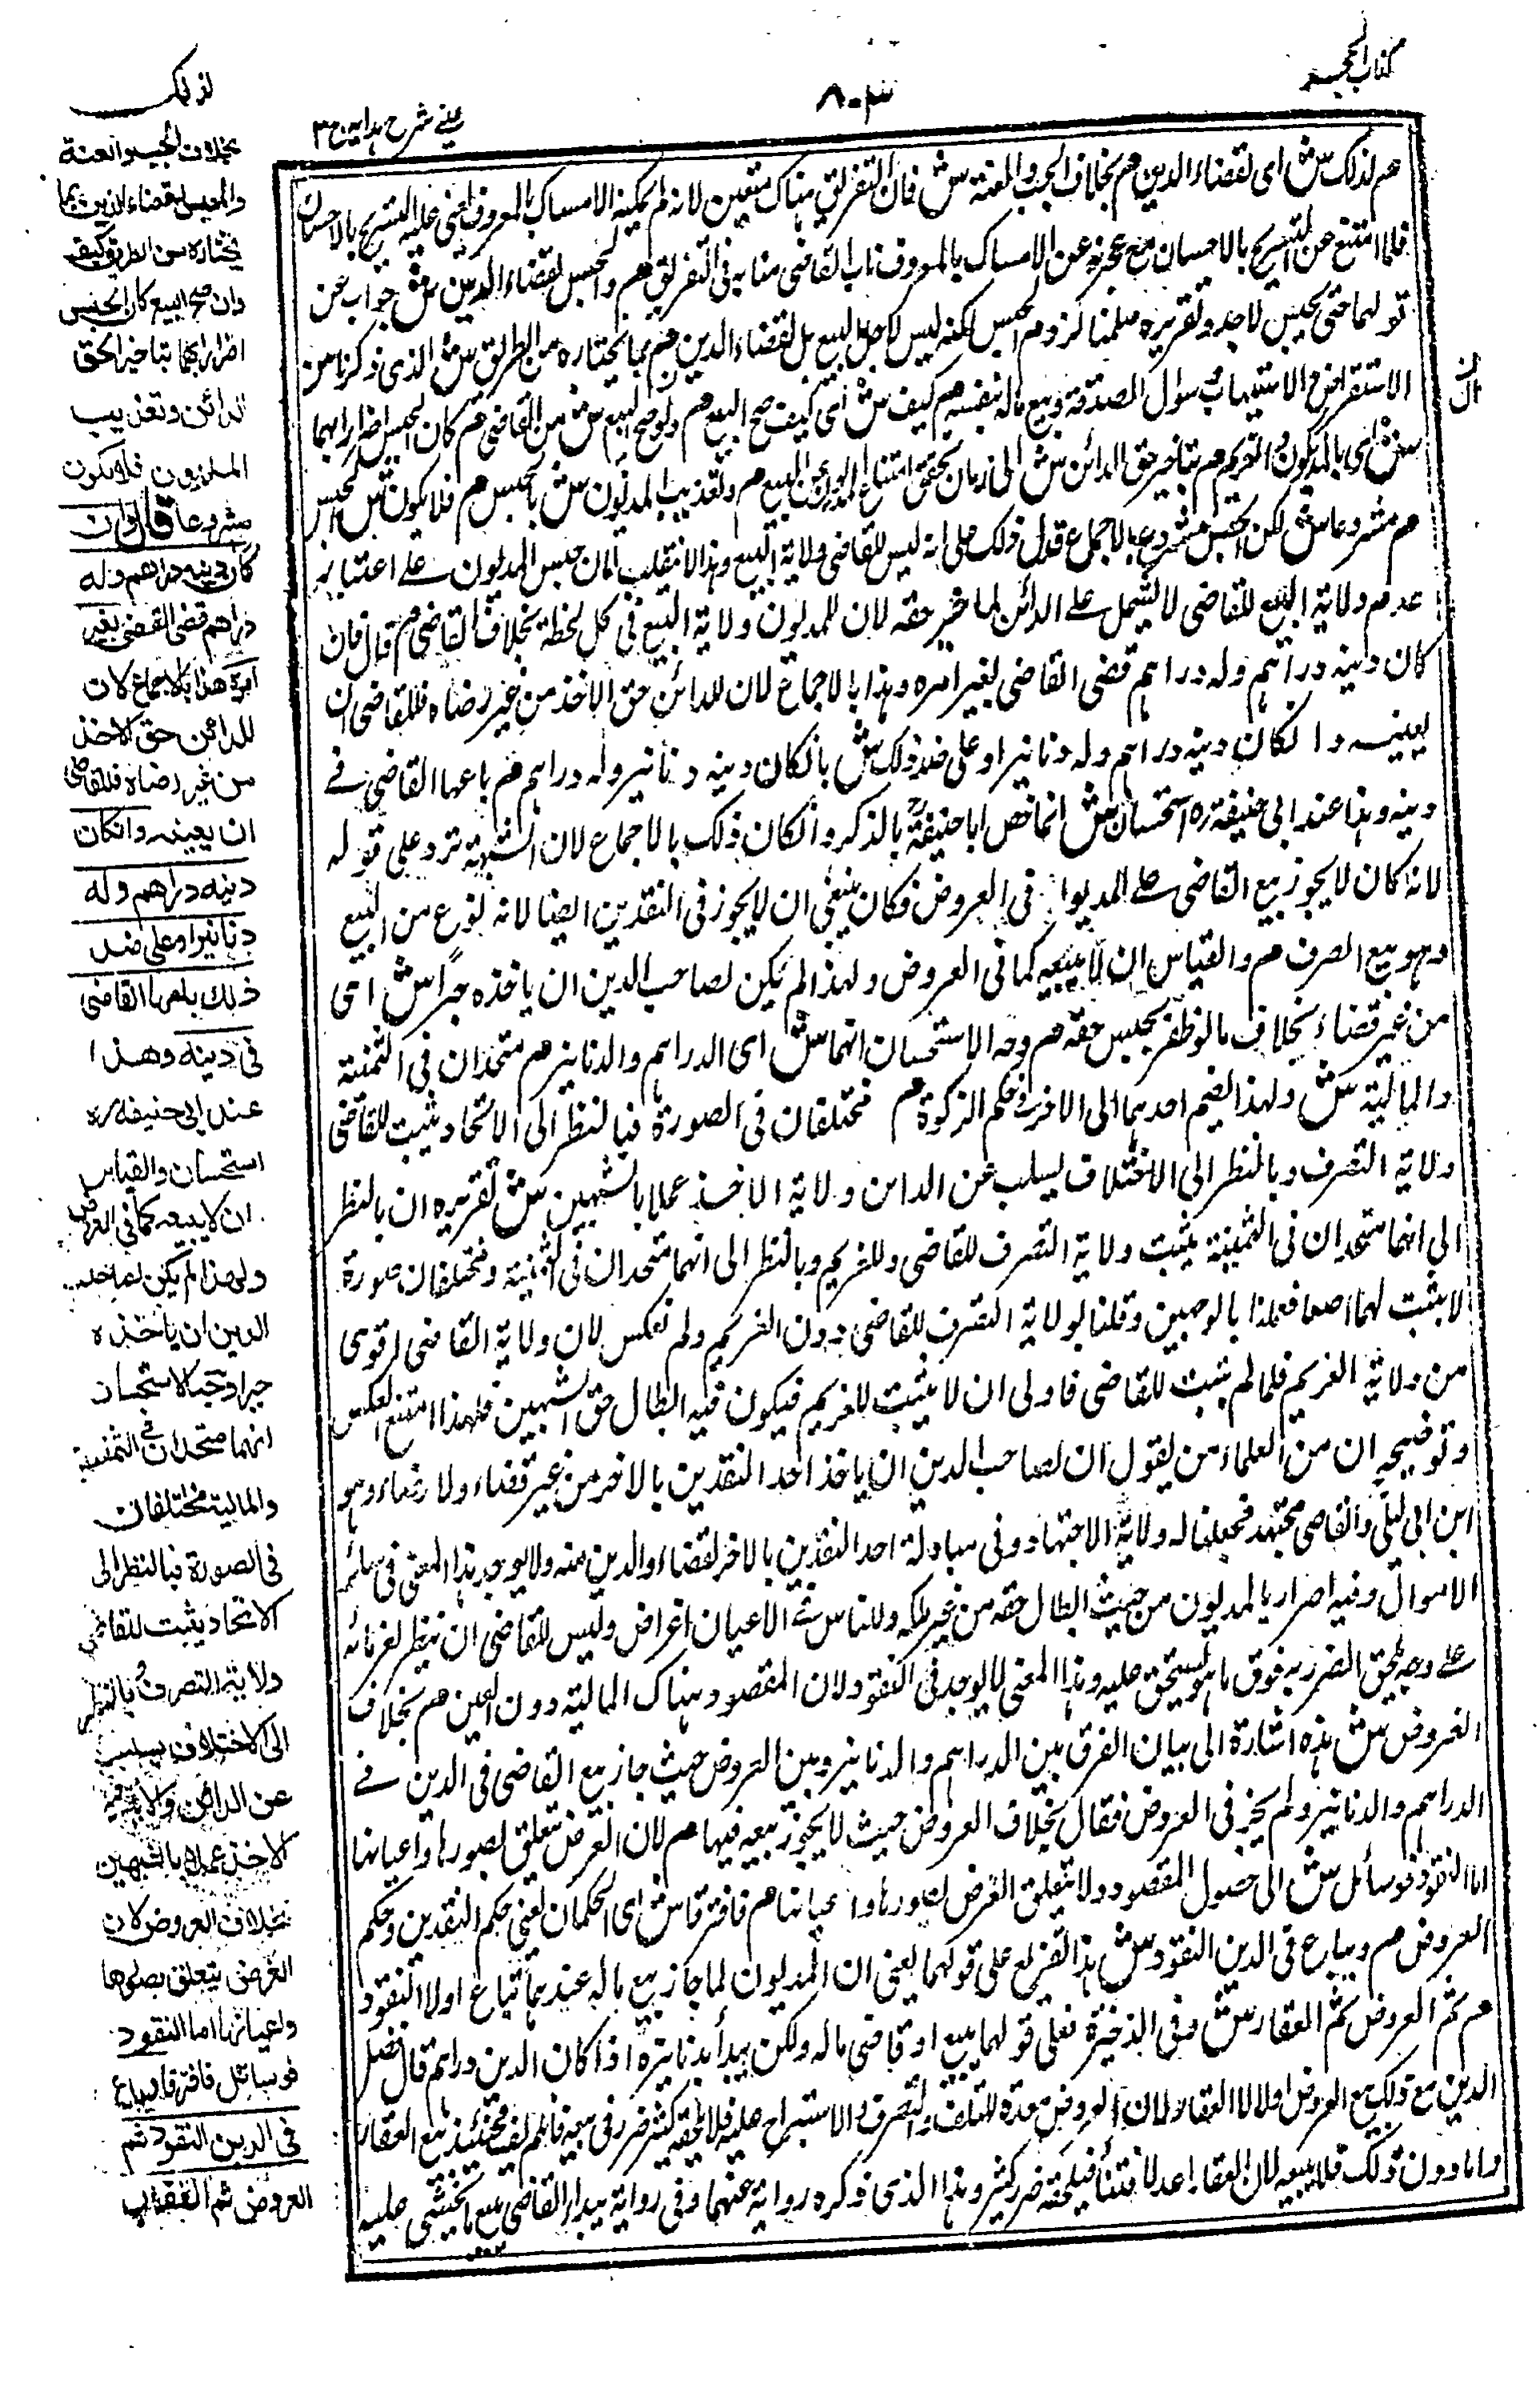 كتاب الحجر
٨٠٣
عيني شرح هداية ج٣
م لذلك ش اى لقضاء الدين م بخلاف الجب والعنة ش فان التفريق هناك متعين لانه لم يمكنه الامساك بالمعروف تعين عليه التسريح بالاحسان
فلما امتنع عن التسريح بالاحسان مع عجزه عن الامساك بالمعروف ناب القاضى منابه فى التفريق م والحبس لقضاء الدين ش جواب عن
قولهما حتى يحبس لاجله وتقريره سلمنا لزوم الحبس لكنه ليس لاجل البيع بل لقضاء الدين م بما يختاره من الطريق ش الذى ذكرنا من
الاستقراض والاستيهاب وسؤال الصدقة وبيع ماله بنفسه م كيف ش اى كيف صح البيع م ولو صح البيع ش من القاضى م كان الحبس اضرارا بهما
ش اى بالمديون والغريم م بتاخير حق الدائن ش الى زمان تحقق امتناع المديون عن البيع م وتعذيب المديون ش بالحبس م فلا يكون ش الحبس
م مشروعا ش لكن الحبس مشروع بالاجماع فدل ذلك على انه ليس للقاضى ولاية البيع وهذا لا ينقلب لان حبس المديون على اعتبار
عدم ولاية البيع للقاضى لا يشمل على الدائن لتاخير حقه لان للمديون ولاية البيع فى كل لحظة بخلاف القاضى م قال فان
كان دينه دراهم وله دراهم قضى القاضى بغير امره وهذا بالاجماع لان للدائن حق الاخذ من غير رضاه فللقاضى ان
يعينه وان كان دينه دراهم وله دنانير او على ضد ذلك ش بان كان دينه دنانير وله دراهم م باعها القاضى فى
دينه وهذا عند ابى حنيفة ره استحسان ش انما خص ابا حنيفة بالذكر وان كان ذلك بالاجماع لان الشبهة ترد على قوله
لانه كان لا يجوز بيع القاضى على المديون فى العروض فكان ينبغى ان لا يجوز فى النقدين ايضا لانه نوع من البيع
وهو بيع الصرف م والقياس ان لا يبيعه كما فى العروض ولهذا لم يكن لصاحب الدين ان ياخذه جبرا ش اى
من غير قضاء بخلاف ما لو ظفر بجنس حقه م وجه الاستحسان انهما ش اى الدراهم والدنانير م متحدان فى الثمنية
والمالية ش ولهذا يضم احدهما الى الاخر فى حكم الزكوة م مختلفان فى الصورة فبالنظر الى الاتحاد يثبت للقاضى
ولاية التصرف وبالنظر الى الاختلاف يسلب عن الدائن ولاية الاخذ عملا بالشبهين ش تقريره ان بالنظر
الى انهما متحدان فى الثمنية يثبت ولاية التصرف للقاضى وللغريم وبالنظر الى انهما متحدان فى الثمنية ومختلفان صورة
لا يثبت لهما اصلا فعملنا بالوجهين وقلنا بولاية التصرف للقاضى دون الغريم ولم نعكس لان ولاية القاضى اقوى
من ولاية الغريم فلما لم يثبت للقاضى فاولى ان لا يثبت للغريم فيكون فيه ابطال حق الشبهين فلهذا امتنع العكس
وتوضيحه ان من العلماء من يقول ان لصاحب الدين ان ياخذ احد النقدين بالاخر من غير قضاء ولا رضاء وهو
ابن ابى ليلى والقاضى مجتهد فجعلنا له ولاية الاجتهاد وفى مبادلة احد النقدين بالاخر لقضاء الدين منه ولا يوجد هذا المعنى فى سائر
الاموال وفيه اضرار بالمديون من حيث ابطال حقه من غير ملكه وللناس فى الاعيان اغراض وليس للقاضى ان ينظر لغرمائه
على وجه يلحق الضرر به فوق ما هو المستحق عليه وهذا المعنى لا يوجد فى النقود لان المقصود هناك المالية دون العين م بخلاف
العروض ش هذه اشارة الى بيان الفرق بين الدراهم والدنانير وبين العروض حيث جاز بيع القاضى فى الدين فى
الدراهم والدنانير ولم يجز فى العروض فقال بخلاف العروض حيث لا يجوز بيعه فيها م لان الغرض يتعلق بصورها واعيانها
اما النقود فوسائل ش الى حصول المقصود ولا يتعلق الغرض بصورها واعيانها م فافترقا ش اى الحكمان يعنى حكم النقدين وحكم
العروض م ويباع فى الدين النقود ش هذا تفريع على قولهما يعنى ان المديون لما جاز بيع ماله عندهما تباع اولا النقود
م ثم العروض ثم العقار ش وفى الذخيرة فعلى قولهما يبيع القاضى ماله ولكن يبدأ بدنانيره اذا كان الدين دراهم قال فضل
الدين مع ذلك بيع العروض اولا لا العقار لان العروض معدة للتقلب والتصرف والاسترباح عليه فلا يلحقه كثير ضرر فى بيعه فان لم يف فحينئذ يبيع العقار
واما دون ذلك فلا يبيعه لان العقار اعد للاقتناء فيلحقه ضرر كثير وهذا الذى ذكره رواية عنهما وفى رواية يبدأ القاضى ببيع ما يخشى عليه
لذلك
بخلاف الجب والعنة
والحبس لقضاء الدين بما
يختاره من الطريق كيف
وان صح البيع كان الحبس
اضرارا بهما بتاخير الحق
الدائن وتعذيب
المديون فلا يكون
مشروعا قال وان
كان دينه دراهم وله
دراهم قضى القضى بغير
امره هذا بالاجماع لان
للدائن حق الاخذ
من غير رضاه فللقاضى
ان يعينه وان كان
دينه دراهم وله
دنانير او على ضد
ذلك باعها القاضى
فى دينه وهذا
عند ابى حنيفة ره
استحسان والقياس
ان لا يبيعه كما فى العروض
ولهذا لم يكن لصاحب
الدين ان ياخذه
جبرا وجه الاستحسان
انهما متحدان فى الثمنية
والمالية مختلفان
فى الصورة فبالنظر الى
الاتحاد يثبت للقاضى
ولاية التصرف وبالنظر
الى الاختلاف يسلب
عن الدائن ولاية
الاخذ عملا بالشبهين
بخلاف العروض لان
الغرض يتعلق بصورها
واعيانها اما النقود
فوسائل فافترقا ويباع
فى الدين النقود ثم
العروض ثم العقار